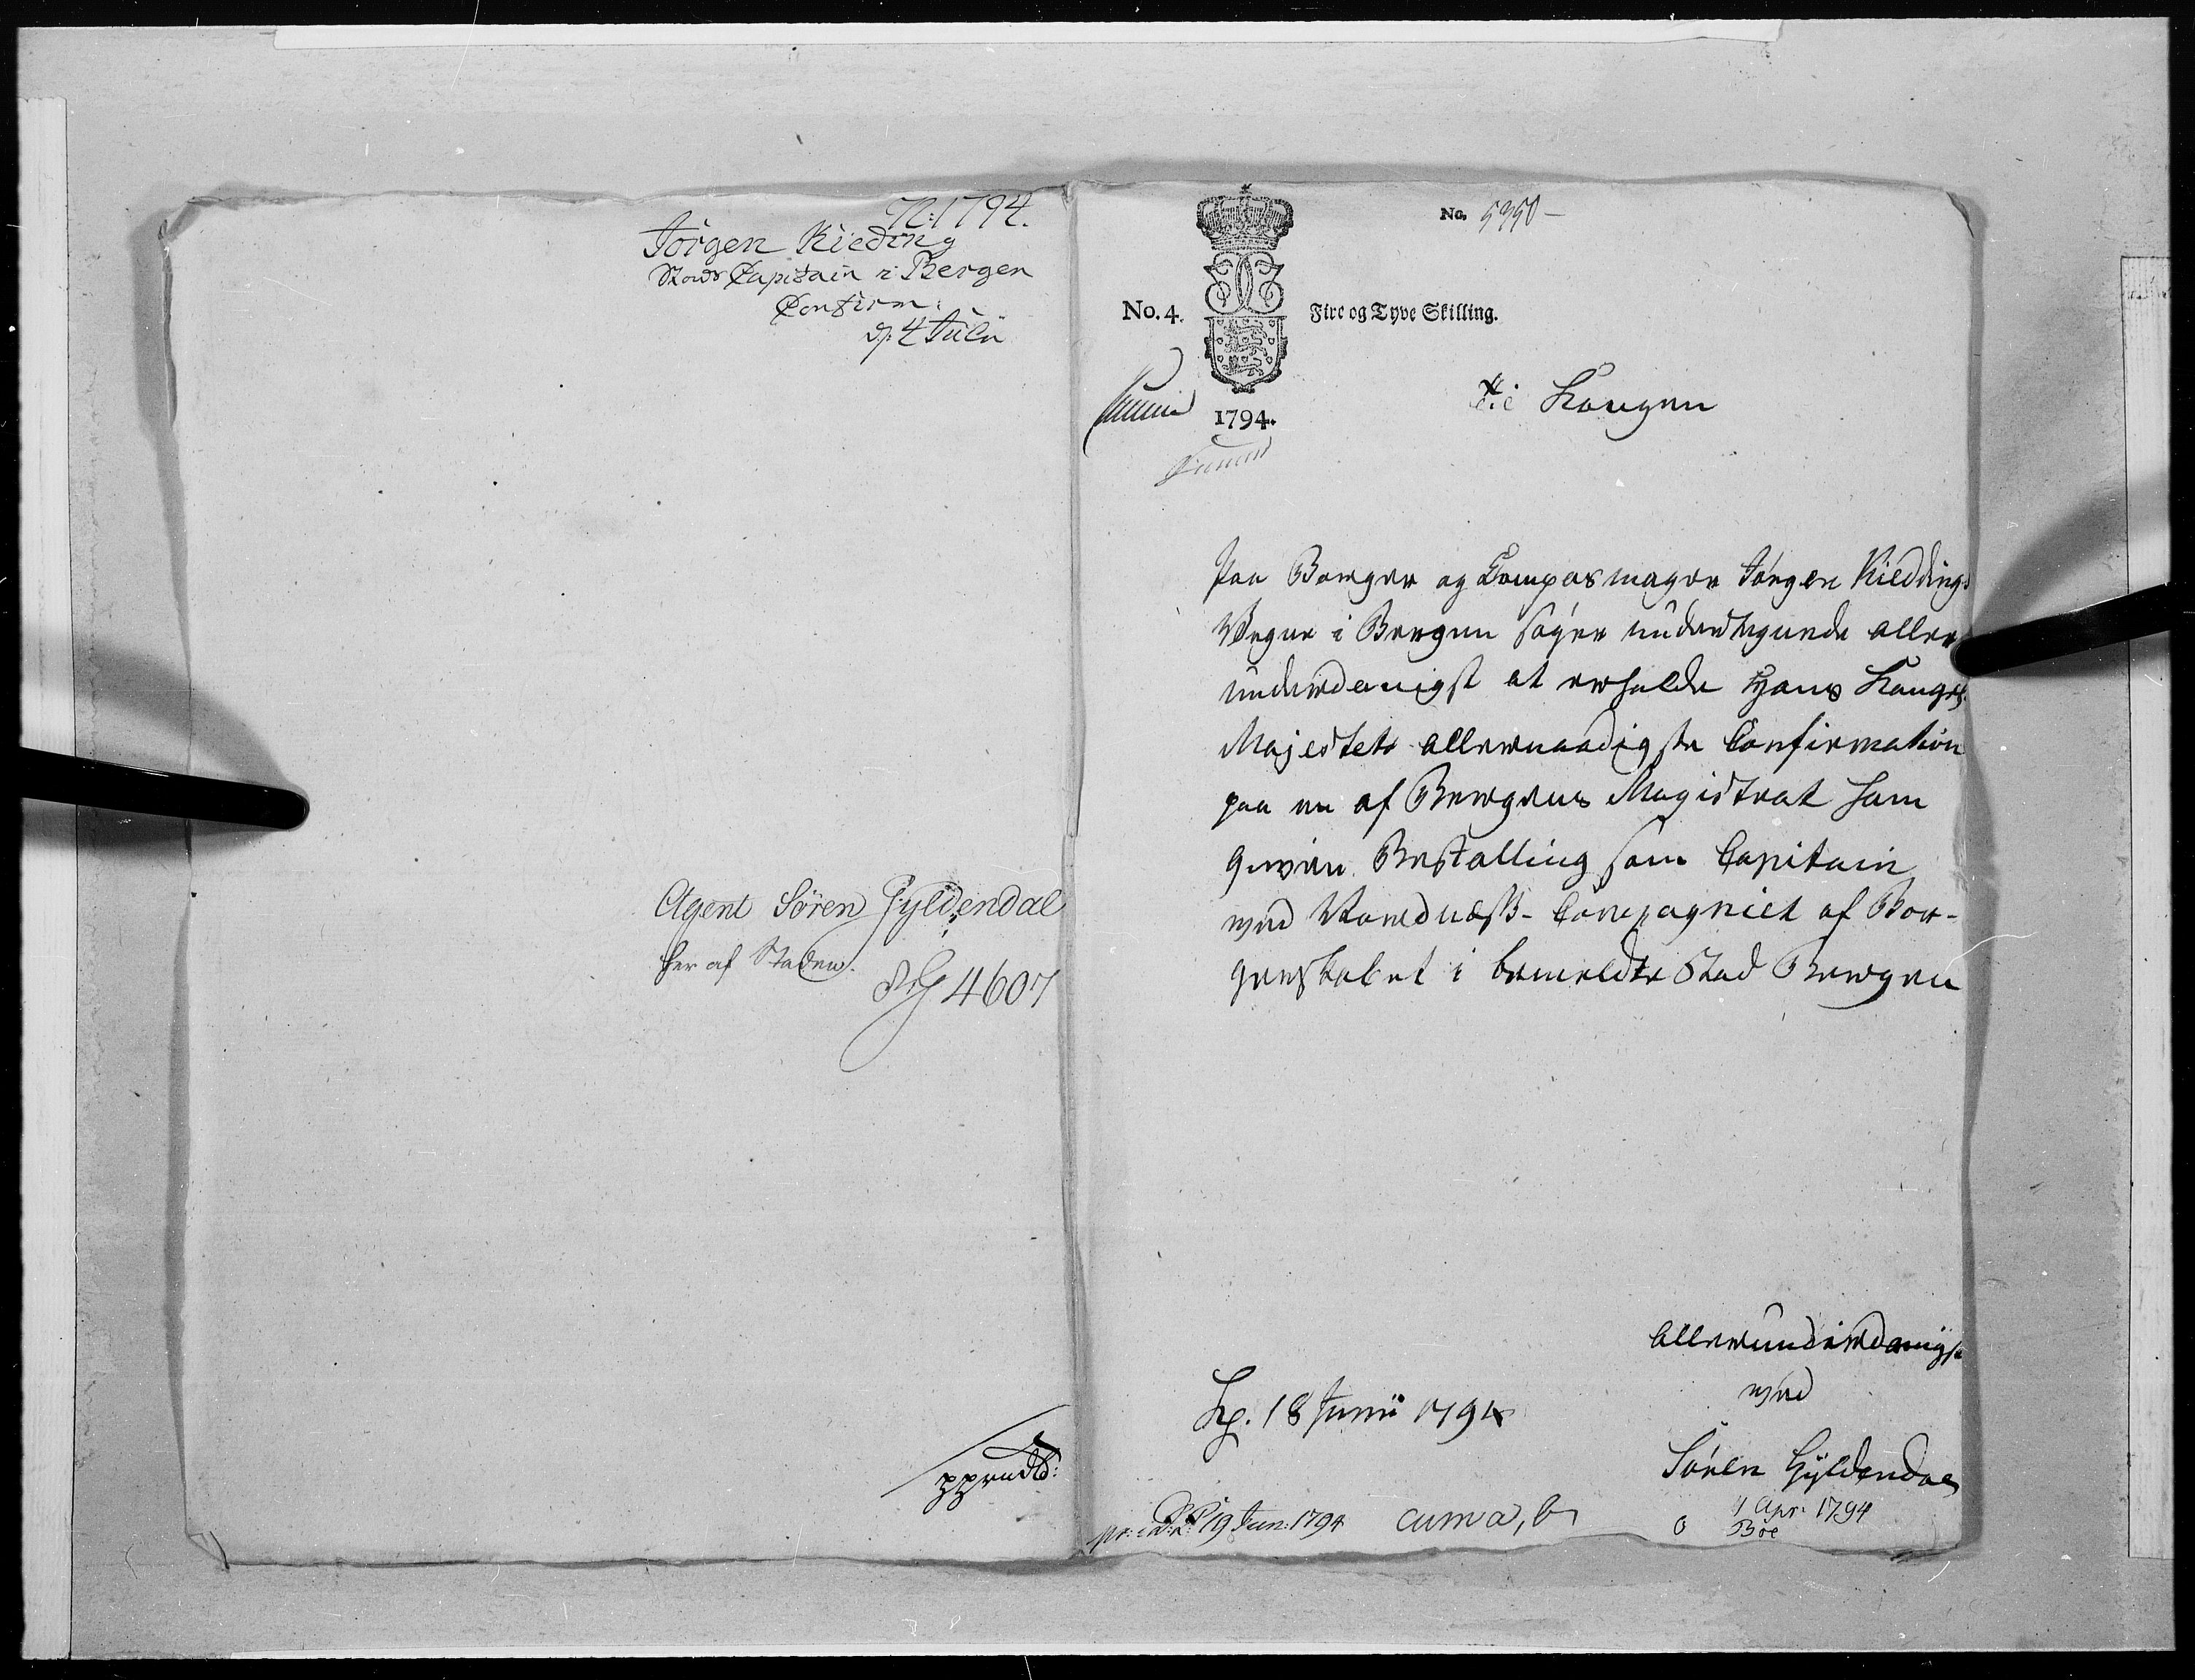 N: 1794.
Jörgen Kieding
Stads Capitain i Bergen
Confirm:
d. 4 Julii
Agent Sören Gyldendal
her af Staden.
4607
No. 5350 -
No. 4.
Fire og Tyve Skilling.
1794.
Til Kongen
Paa Borger og Compasmager Jörgen Kieddings
Vegne i Bergen söger undertegnede aller
underdanigst at erholde Hans Konges
Majestets allernaadigste Confirmation
paa en af Bergens Magistrat ham
given Bestalling som Capitain
ved Nordnæss-Compagniet af Bor-
gerskabet i bemeldte Stad Bergen
Allerunderdanigst
ved
Kh. 18 Junii 1794
Sören Gyldendal
19 Jun: 1794
cum a, b
4 Apr. 1794